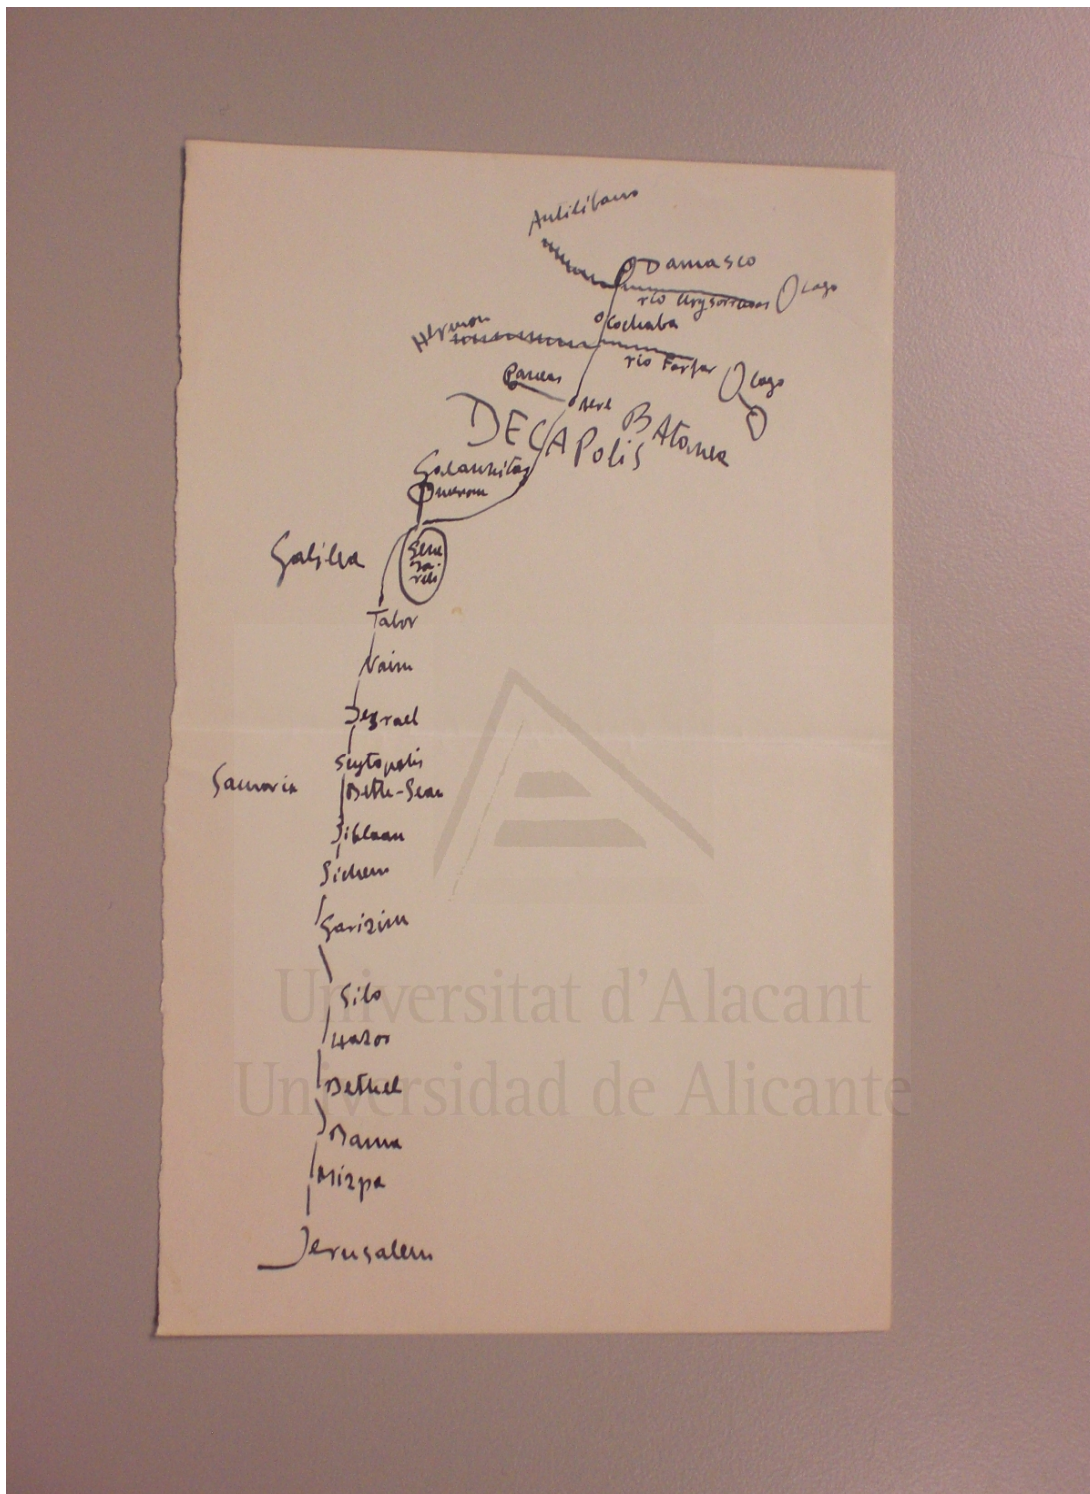 Antilíbano
Damasco
río Crysorroas
lago
Cochaba
Hermon
río Farfar
lago
Paneas
Aere
DECAPOLIS
BAtanea
Galaunitas
Merom
Galilea
Gene
sa-
reth
Tabor
Naim
Jezrael
Scytopolis
Samaria
Beth-Sean
Jiblaam
Sichem
Garizim
Silo
Hazor
Bethel
Rama
Mizpa
Jerusalem
Universitat d'Alacant
Universidad de Alicante